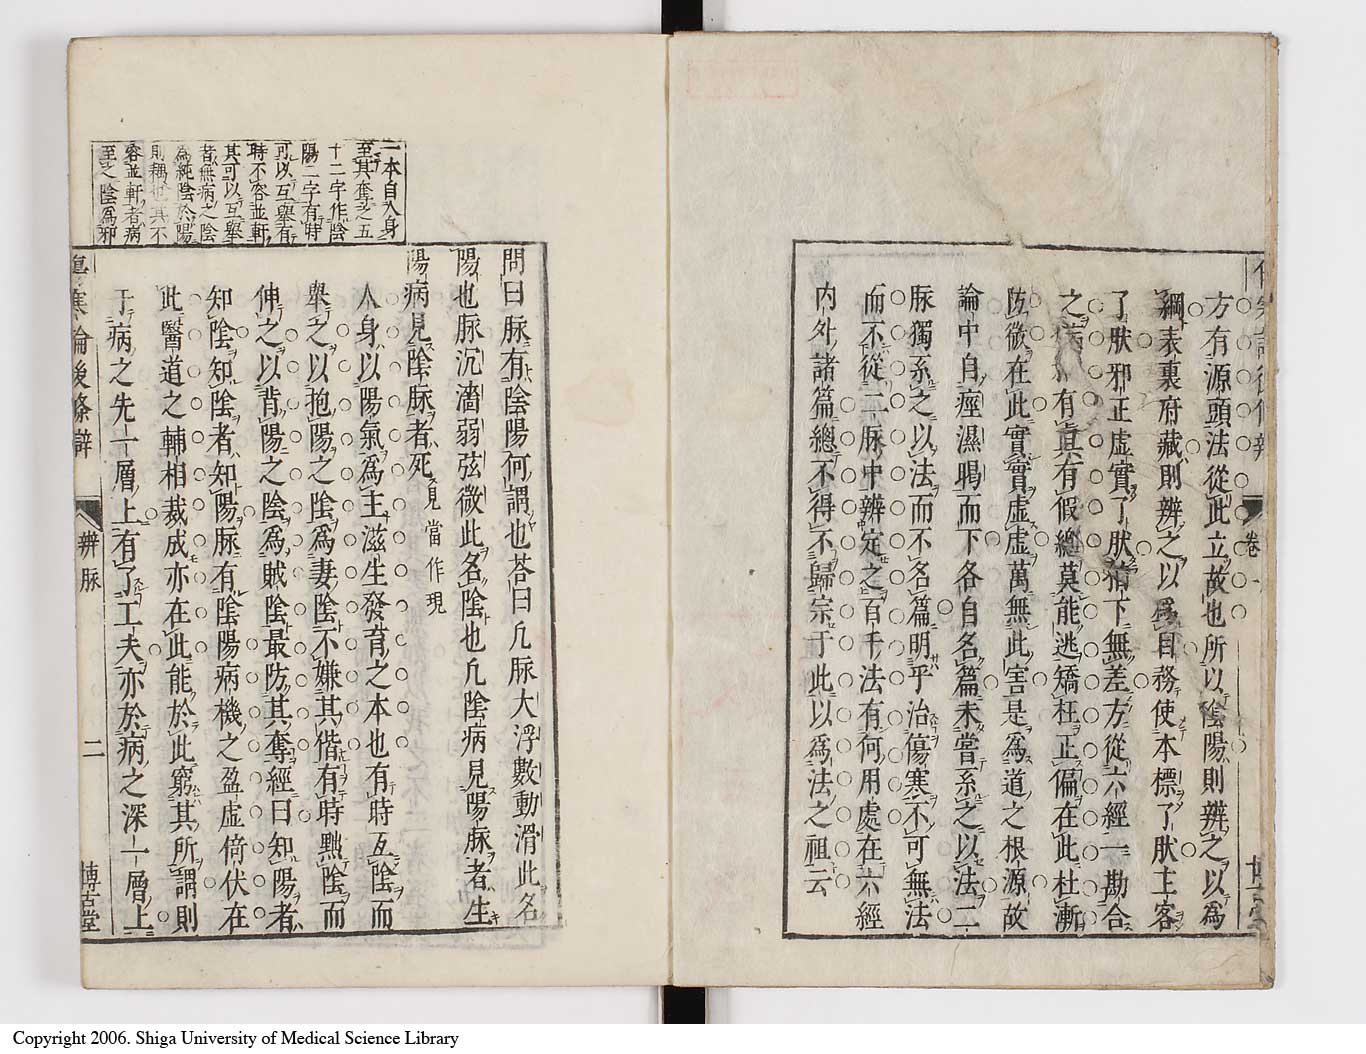 方有源頭法從此立故也所以陰陽則辨之以為
綱表裏府藏則辨之以爲目務使本標了肰主客
了肰邪正虛實了肰猶下無差方從六經一勘合
之病有眞有假總莫能逃矯枉正偏在此杜漸
防微在此實實虛虛萬無此害是爲道之根源故
論中自痙濕暍而下各自名篇未嘗系之以法二
脉獨系之以法而不名篇明乎治傷寒不可無法
而不從二脉中辨定之百千法有何用處在六經
內外諸篇總不得不歸宗于此以爲法之祖云
卷
問曰脉有陰陽何謂也荅曰凢脉大浮數動滑此名
陽也脉沉濇弱弦微此名陰也凢陰病見陽脉者生
陽病見陰脉者死見當作現
人身以陽氣爲主滋生發育之本也有時互陰而
舉之以抱陽之陰爲妻陰不嫌其偕有時黜陰而
伸之以背陽之陰爲賊陰最防其奪經曰知陽者
知陰知陰者知陽脉有陰陽病機之盈虛倚伏在
此醫道之輔相裁成亦在此能於此窮其所謂則
于病之先一層上有了工夫亦於病之深一層上
一本自人身
至其奪之五
十二字作陰
陽二字有時
可以互舉有
時不容並軒
其可以互舉
者無病之陰
為純陰於陽
則耦也其不
容並軒者病
至之陰為邪
傷寒論後條辯
辨脉
二
博古堂
Copyright 2006. Shiga University of Medical Science Library